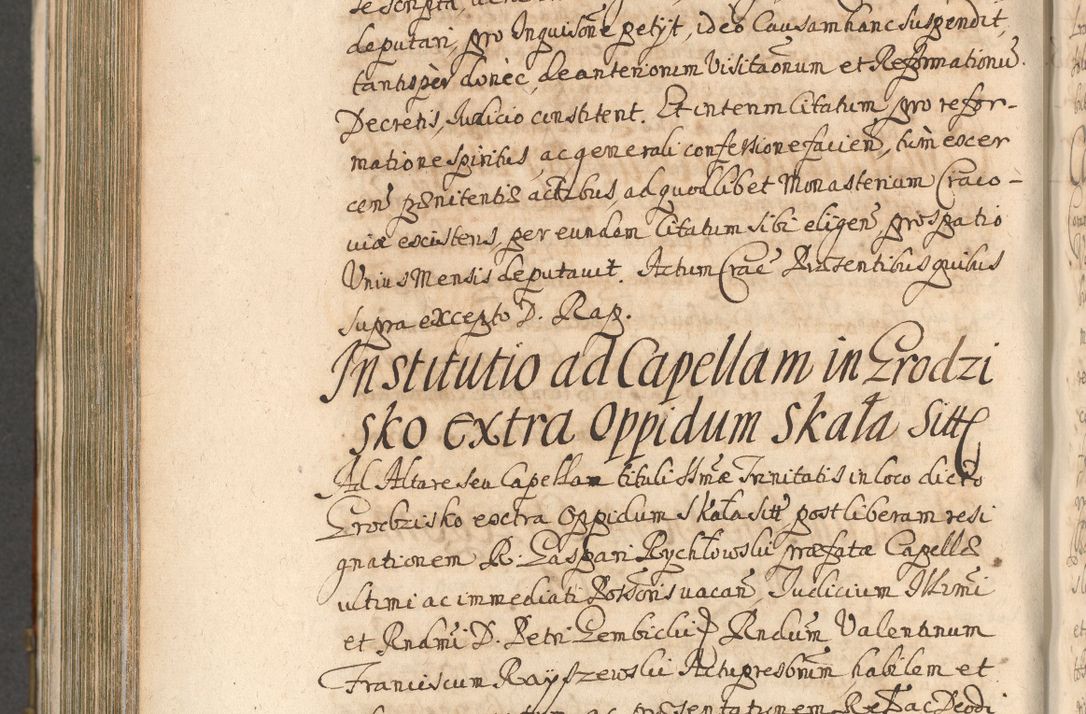 deputari, pro Inquisone petijt, ideo Causam hanc suspendit,
tantisper donec, de anteriorum Visitaonum et Reformationu
Decretis, Judicio constitent. Et interim Citatum, pro refor-
matione spiritus, ac generali confessione facien, tum exer
cen pœnitentiæ actibus, ad quodlibet Monasterium Craco-
viæ existens, per eundem Citatum sibi eligen, pro spatio
Unius Mensis deputavit. Actum Crae Præsentibus quibus
supra excepto D. Rap.
Institutio ad Capellam in Grodzi
sko extra Oppidum Skała Sitt
Ad Altare seu Capellam tituli SSmæ Trinitatis in loco dicto
Grodzisko extra Oppidum Skała sitt post liberam resi
gnationem R. Gaspari Rychłowski præfatæ Capellæ
ultimi ac immediati Possoris vacan, Judicium Illrmi
et Rndmi D. Petri Gembicki Rndum Valentinum
Franciscum Rayszewski habilem et